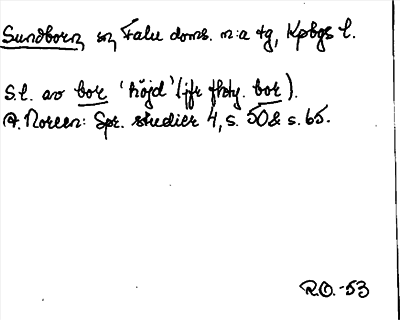 Sundborn sn Falu doms. n:a tg, Kpbgs l.
S.l. av bor 'höjd' (jfr fhty. bor).
A. Noreen: Spr. studier 4, s. 50 & s. 65.
R.O. -53